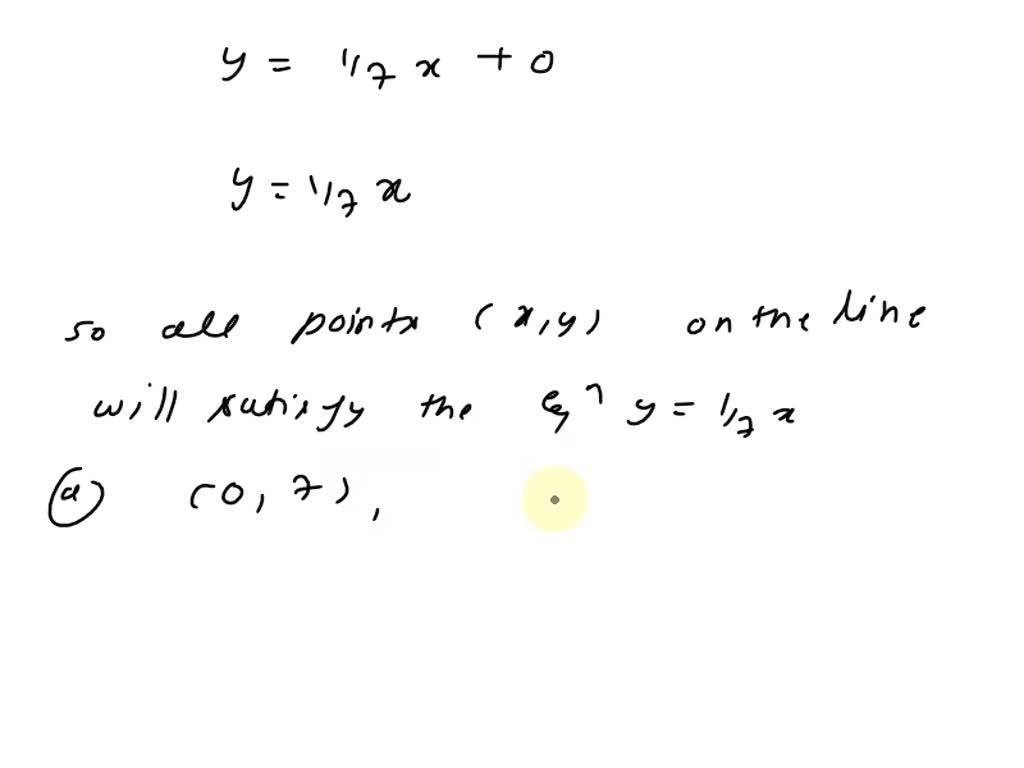 y = 1/7 x + 0
y = 1/7 x
so all points (x,y) on the line
will satisfy the eqn y = 1/7 x
(a) (0, 7),